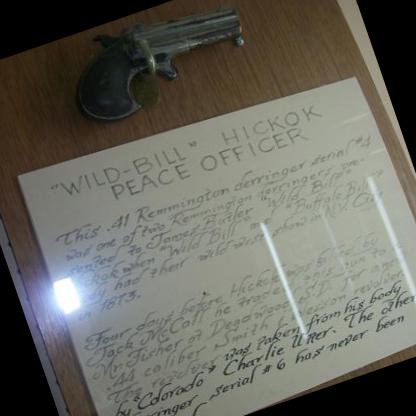 "WILD-BILL" HICKOK
PEACE OFFICER
This .41 Remmington derringer serial #4
was one of two Remmington derringers pre-
sented to James Butler "Wild Bill"
Hickok when "Wild Bill" and "Buffalo Bill"
Cody had their wild west show in N.Y. City
in 1873.
Four days before Hickok was killed by
Jack McCall he traded this gun to
Mr. Fisher of Deadwood, S.D. for a
.44 caliber Smith & Wesson revolver.
The revolver was taken from his body
by "Colorado" Charlie Utter. The other
derringer serial #6 has never been